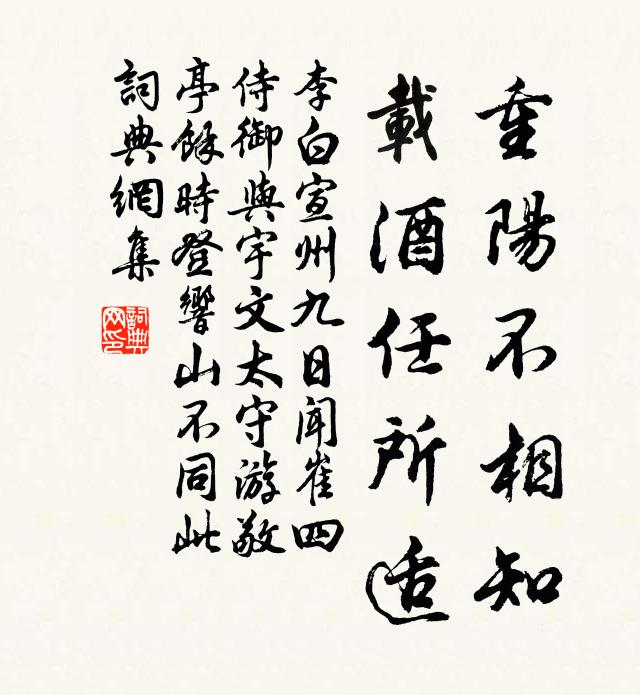 重陽不相知
載酒任所适
李白宣州九日聞崔四
侍御與宇文太守游敬
亭餘時登響山不同此
詞典網集
詞典
网印